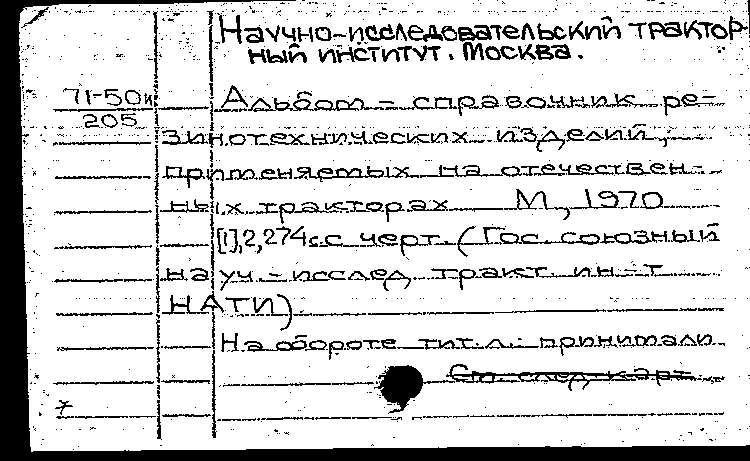 Научно-исследовательский трактор-
ный институт. Москва.
71-50к
205
Альбом-справочник ре-
зинотехнических изделий,
применяемых на отечествен-
ных тракторах М, 1970
[1],2,274с.с черт. (Гос. союзный
науч.-исслед. тракт. ин-т
НАТИ)
На обороте тит.л.: принимали
См. след. карт.